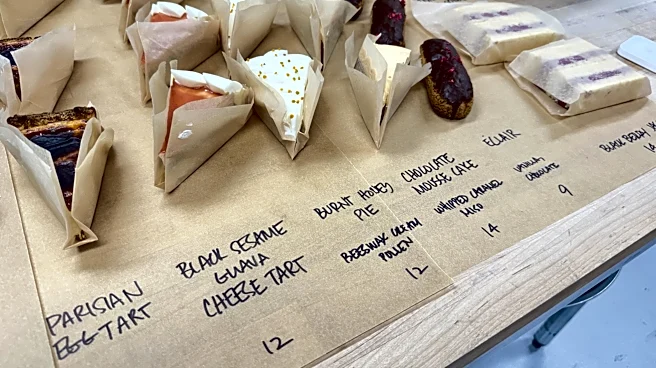 PARISIAN
EGG TART
BLACK SESAME
GUAVA
CHEESE TART
12
BURNT HONEY
PIE
BEESWAX CREAM
POLLEN
12
CHOCOLATE
MOUSSE CAKE
WHIPPED CARAMEL
MISO
14
ÉCLAIR
VANILLA,
CHOCOLATE
9
BLACK BERRY